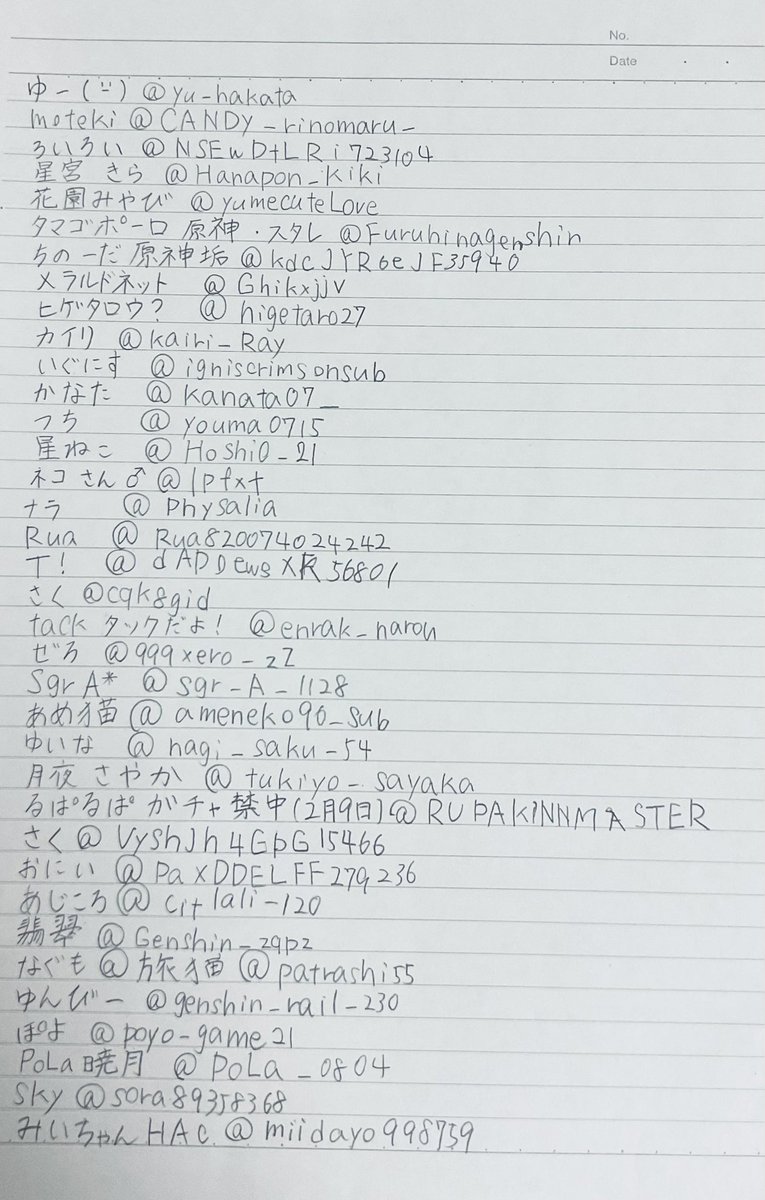 No.
Date
ゆー(¨) @yu-hakata
moteki @CANDY_rinomaru_
ろいろい @NSEwDtLRi723104
星宮 きら @Hanapon_Kiki
花園みやび @yumecuteLove
タマゴボーロ 原神・スタレ @Furuhinagenshin
ちのーだ 原神垢 @kdcJYR6eJF35940
メラルドネット @Ghikxjjv
ヒゲタロウ? @higetaro27
カイリ @kairi_Ray
いぐにす @igniscrimsonsub
かなた @kanata07_
つち @youma0715
星ねこ @Hoshi0_21
ネコさん♂ @lpfxt
ナラ @Physalia
Rua @Rua820074024242
T! @dAPDewsXR56801
さく @cqk8gid
tack タックだよ! @enrak_narou
ぜろ @999xero_zZ
Sgr A* @sgr_A_1128
あめ猫 @ameneko90_sub
ゆいな @nagi_saku_54
月夜 さやか @tukiyo_sayaka
るぱるぱ ガチャ禁中(2月9日)@RUPAKINNMASTER
さく @VyShJh4GpG15466
おにい @PaXDDELFF279236
あじころ @citlali_120
翡翠 @Genshin_zqpz
なぐも@旅猫 @patrashi55
ゆんびー @genshin_rail_230
ぽよ @poyo_game21
PoLa 暁月 @PoLa_0804
Sky @sora89358368
みいちゃんHAC @miidayo998759